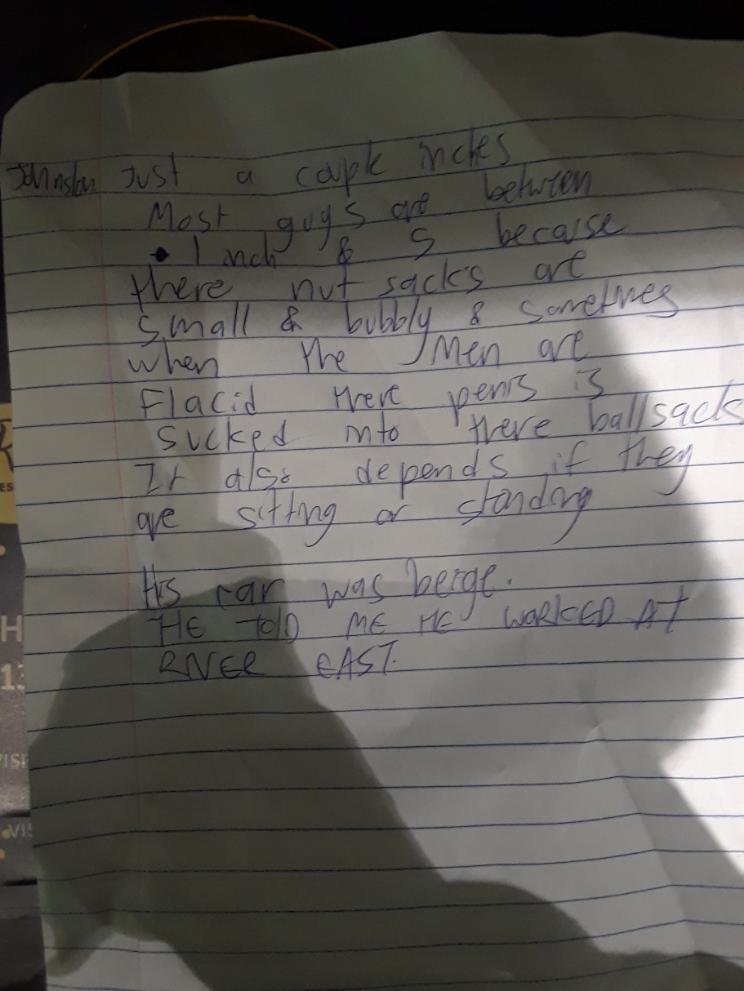 Johnston Just a couple inches
Most guys are between
• 1 inch & 5 because
there nut sacks are
small & bubbly & sometimes
when the men are
Flacid there penis is
sucked into there ballsack
It also depends if they
are sitting or standing
His car was beige.
HE TOLD ME HE WORKED AT
RIVER EAST.